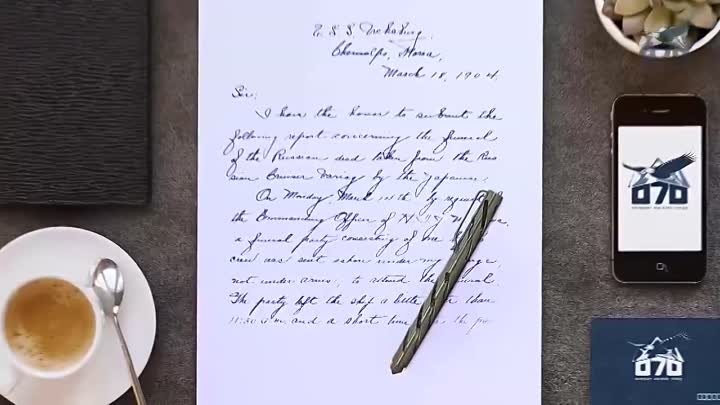 U. S. S. Vicksburg,
Chemulpo, Korea,
March 18, 1904.
Sir:
I have the honor to submit the
following report concerning the funeral
of the Russian dead taken from the Rus
sian Cruiser Variag by the Japanese.
On Monday March by request
the Commanding Officer of
a funeral party consisting of one
crew was sent ashore under my
not under arms, to attend the
The party left the ship a little than
11:30 a.m. and a short time the
070
070